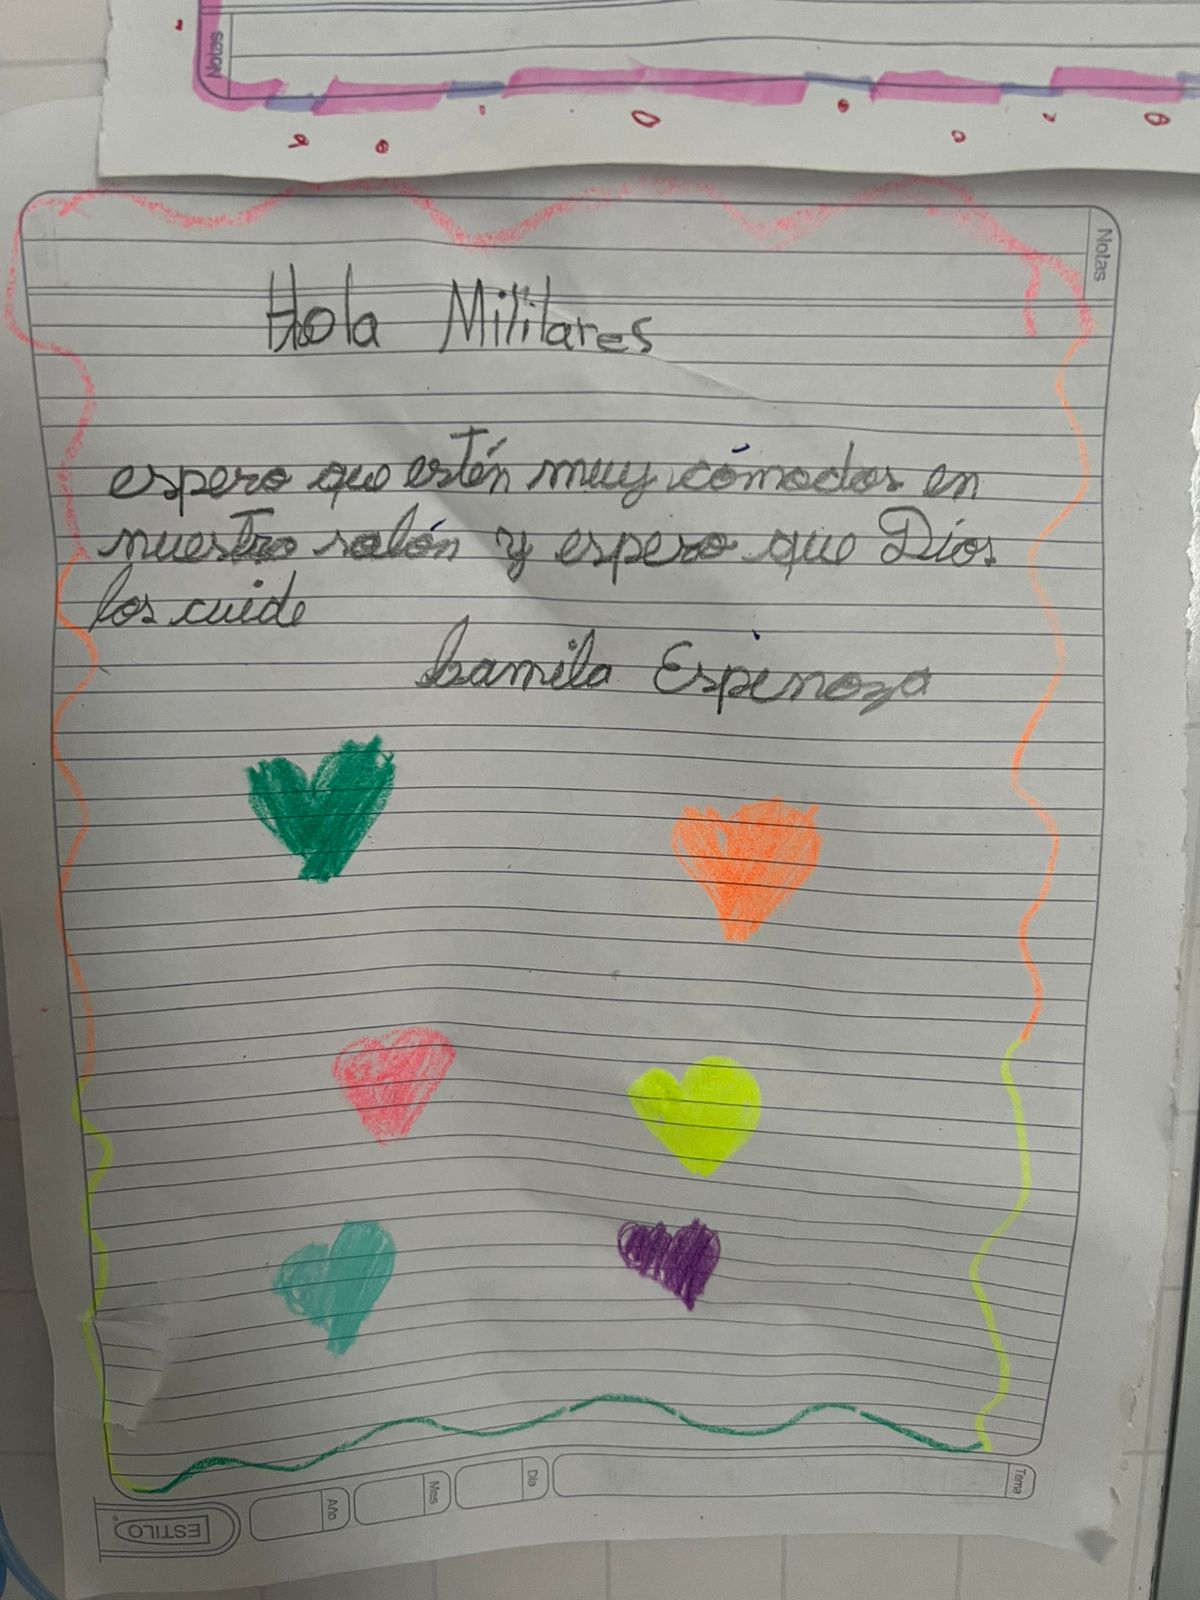 Notas
Notas
Hola Militares
espero que estén muy cómodos en
nuestro salón y espero que Dios
los cuide
Camila Espinoza
Tema
Día
Mes
Año
ESTILO